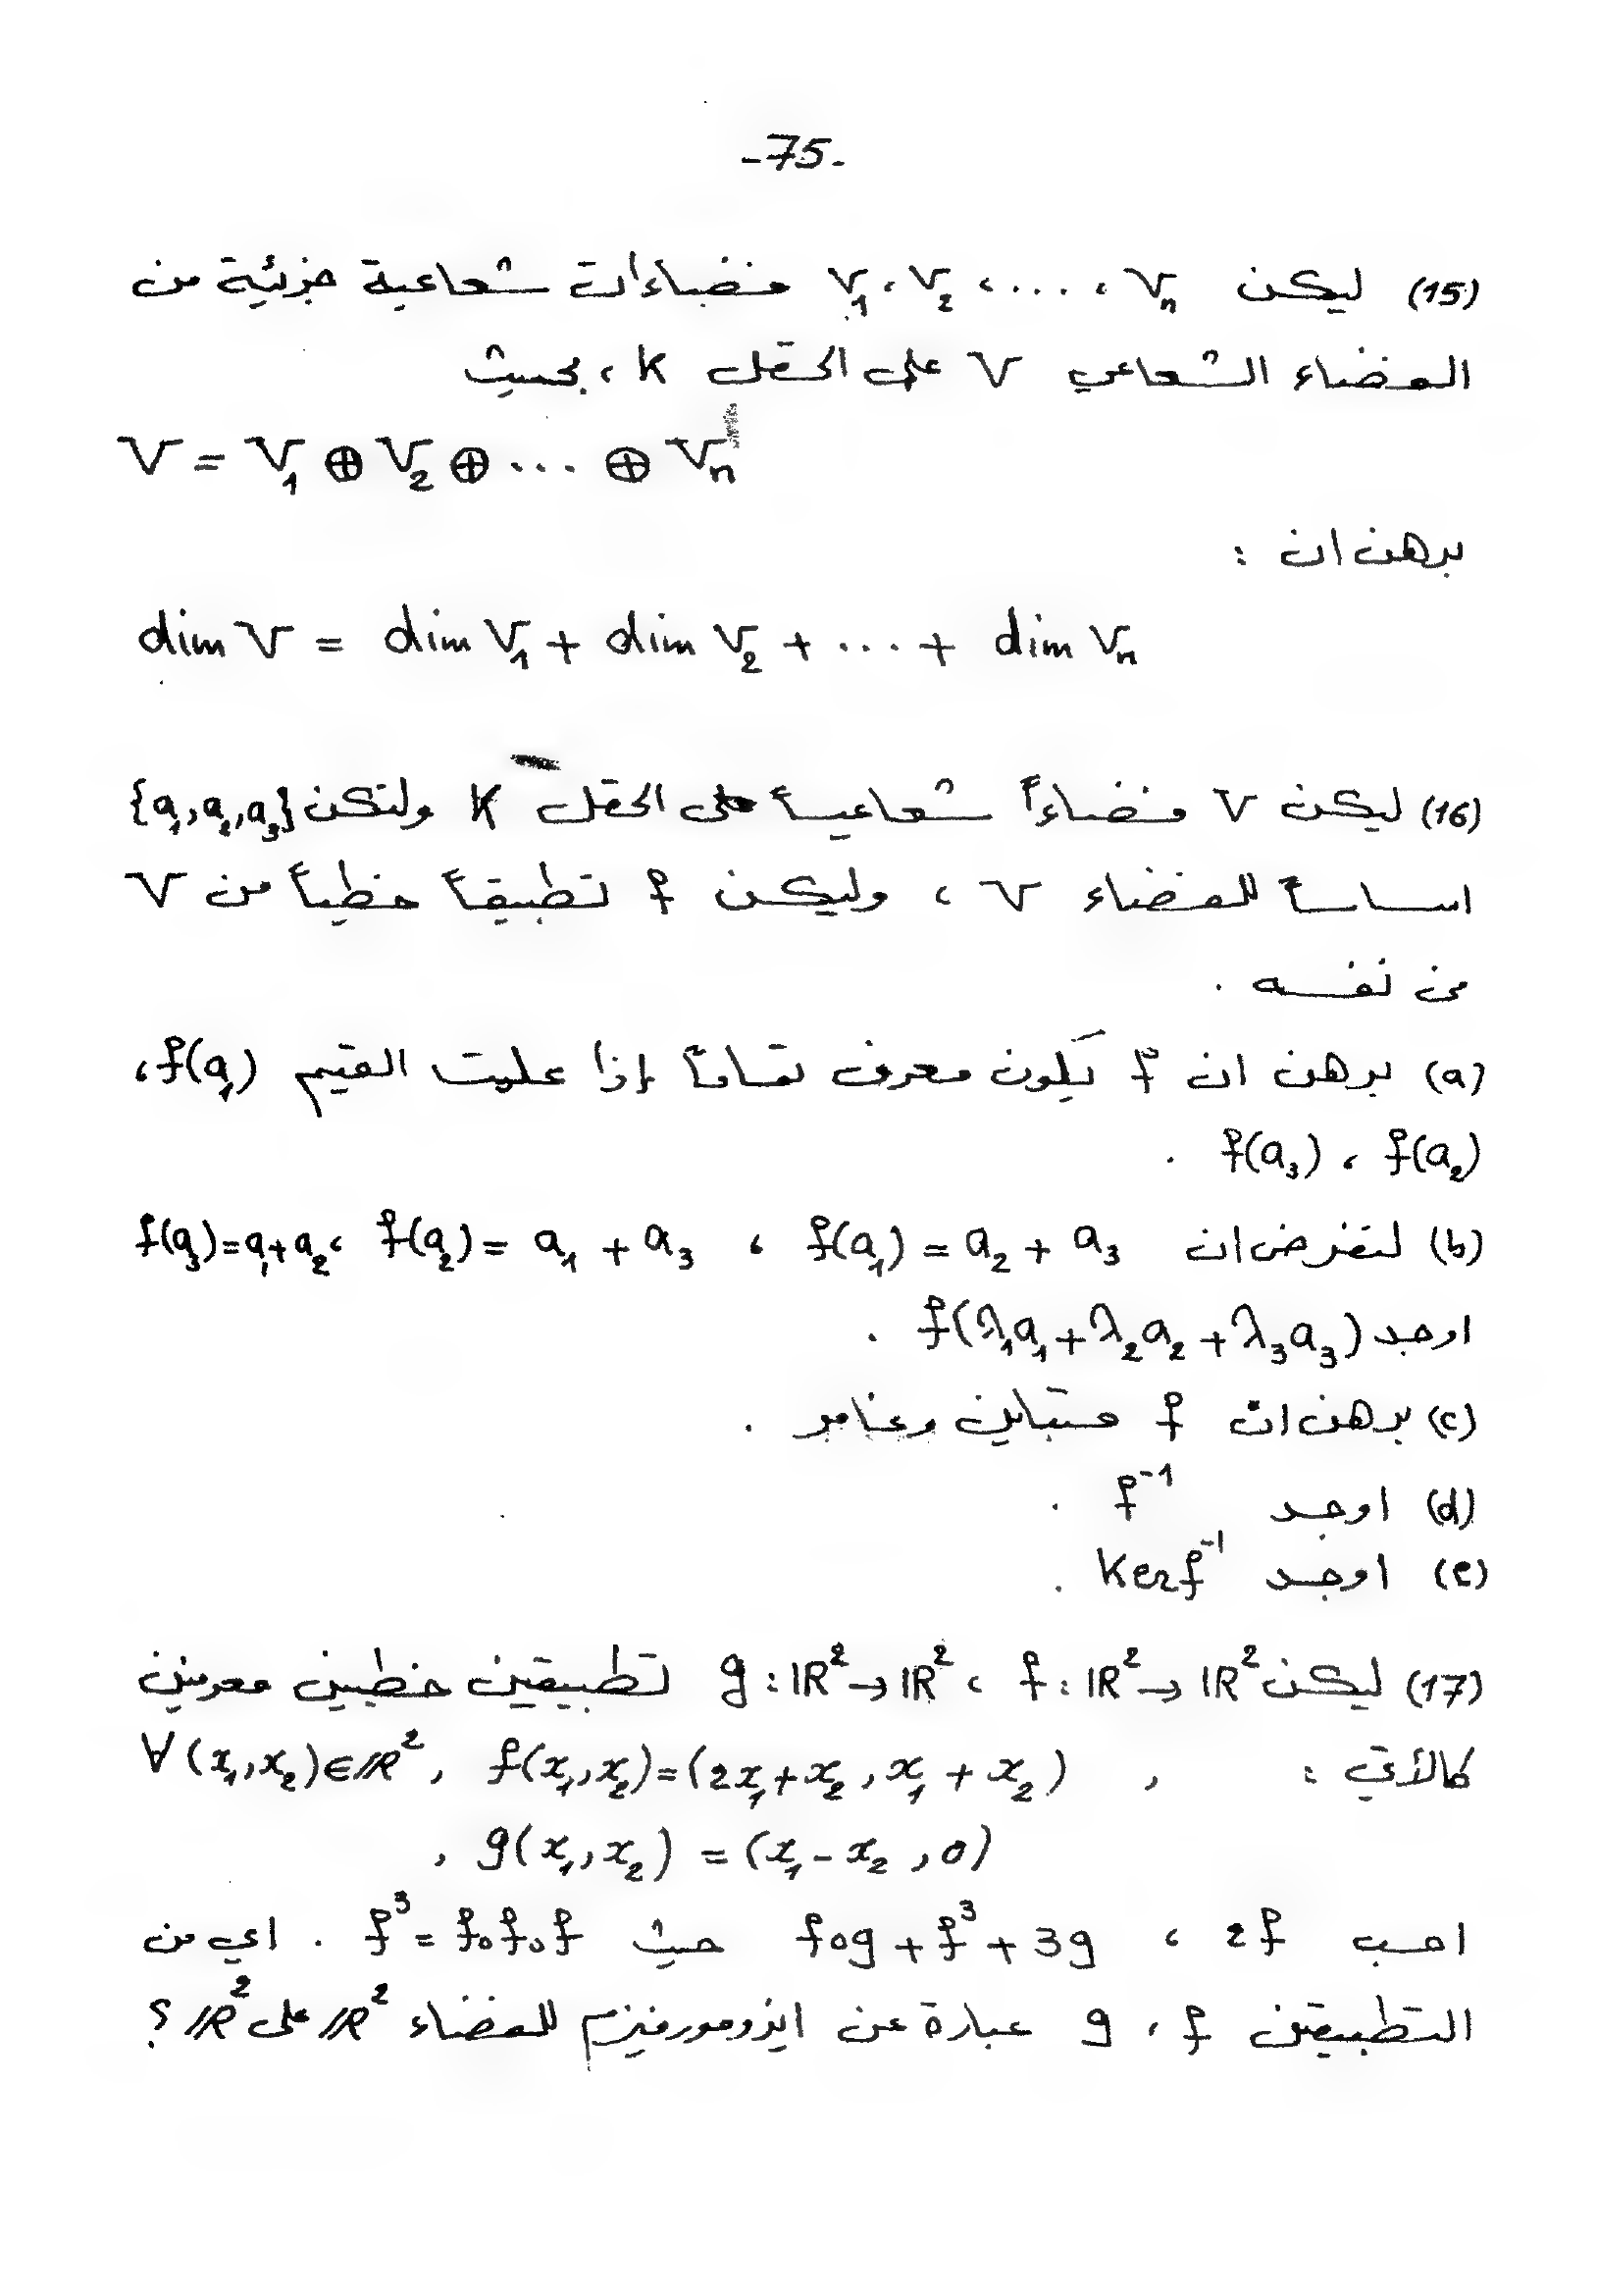 -75-
(15) ليكن V₁ ، V₂ ، .... ، Vₙ فضاءات شعاعية جزئية من
الفضاء الشعاعي V على الحقل K ، بحيث
V = V₁ ⊕ V₂ ⊕ ... ⊕ Vₙ
برهن ان :
dim V = dim V₁ + dim V₂ + ... + dim Vₙ
(16) ليكن V فضاءاً شعاعياً على الحقل K ولتكن {a₁, a₂, a₃}
اساساً للفضاء V ، وليكن f تطبيقاً خطياً من V
في نفسه .
(a) برهن ان f يكون معرف تماماً إذا علمت القيم f(a₁) ،
f(a₂) ، f(a₃) .
(b) لنفرض ان f(a₁) = a₂ + a₃ ، f(a₂) = a₁ + a₃ ، f(a₃) = a₁ + a₂
اوجد f(λ₁a₁ + λ₂a₂ + λ₃a₃) .
(c) برهن ان f متباين وغامر .
(d) اوجد f⁻¹ .
(e) اوجد Ker f⁻¹ .
(17) ليكن f : ℝ² → ℝ² ، g : ℝ² → ℝ² تطبيقين خطيين معرفين
كالآتي : , f(x₁, x₂) = (2x₁ + x₂ , x₁ + x₂) , ∀ (x₁, x₂) ∈ ℝ²
, g(x₁, x₂) = (x₁ - x₂ , 0)
احسب 2f ، fog + f³ + 3g حيث f³ = fofof . اي من
التطبيقين f ، g عبارة عن ايزومورفيزم للفضاء ℝ² على ℝ² ؟